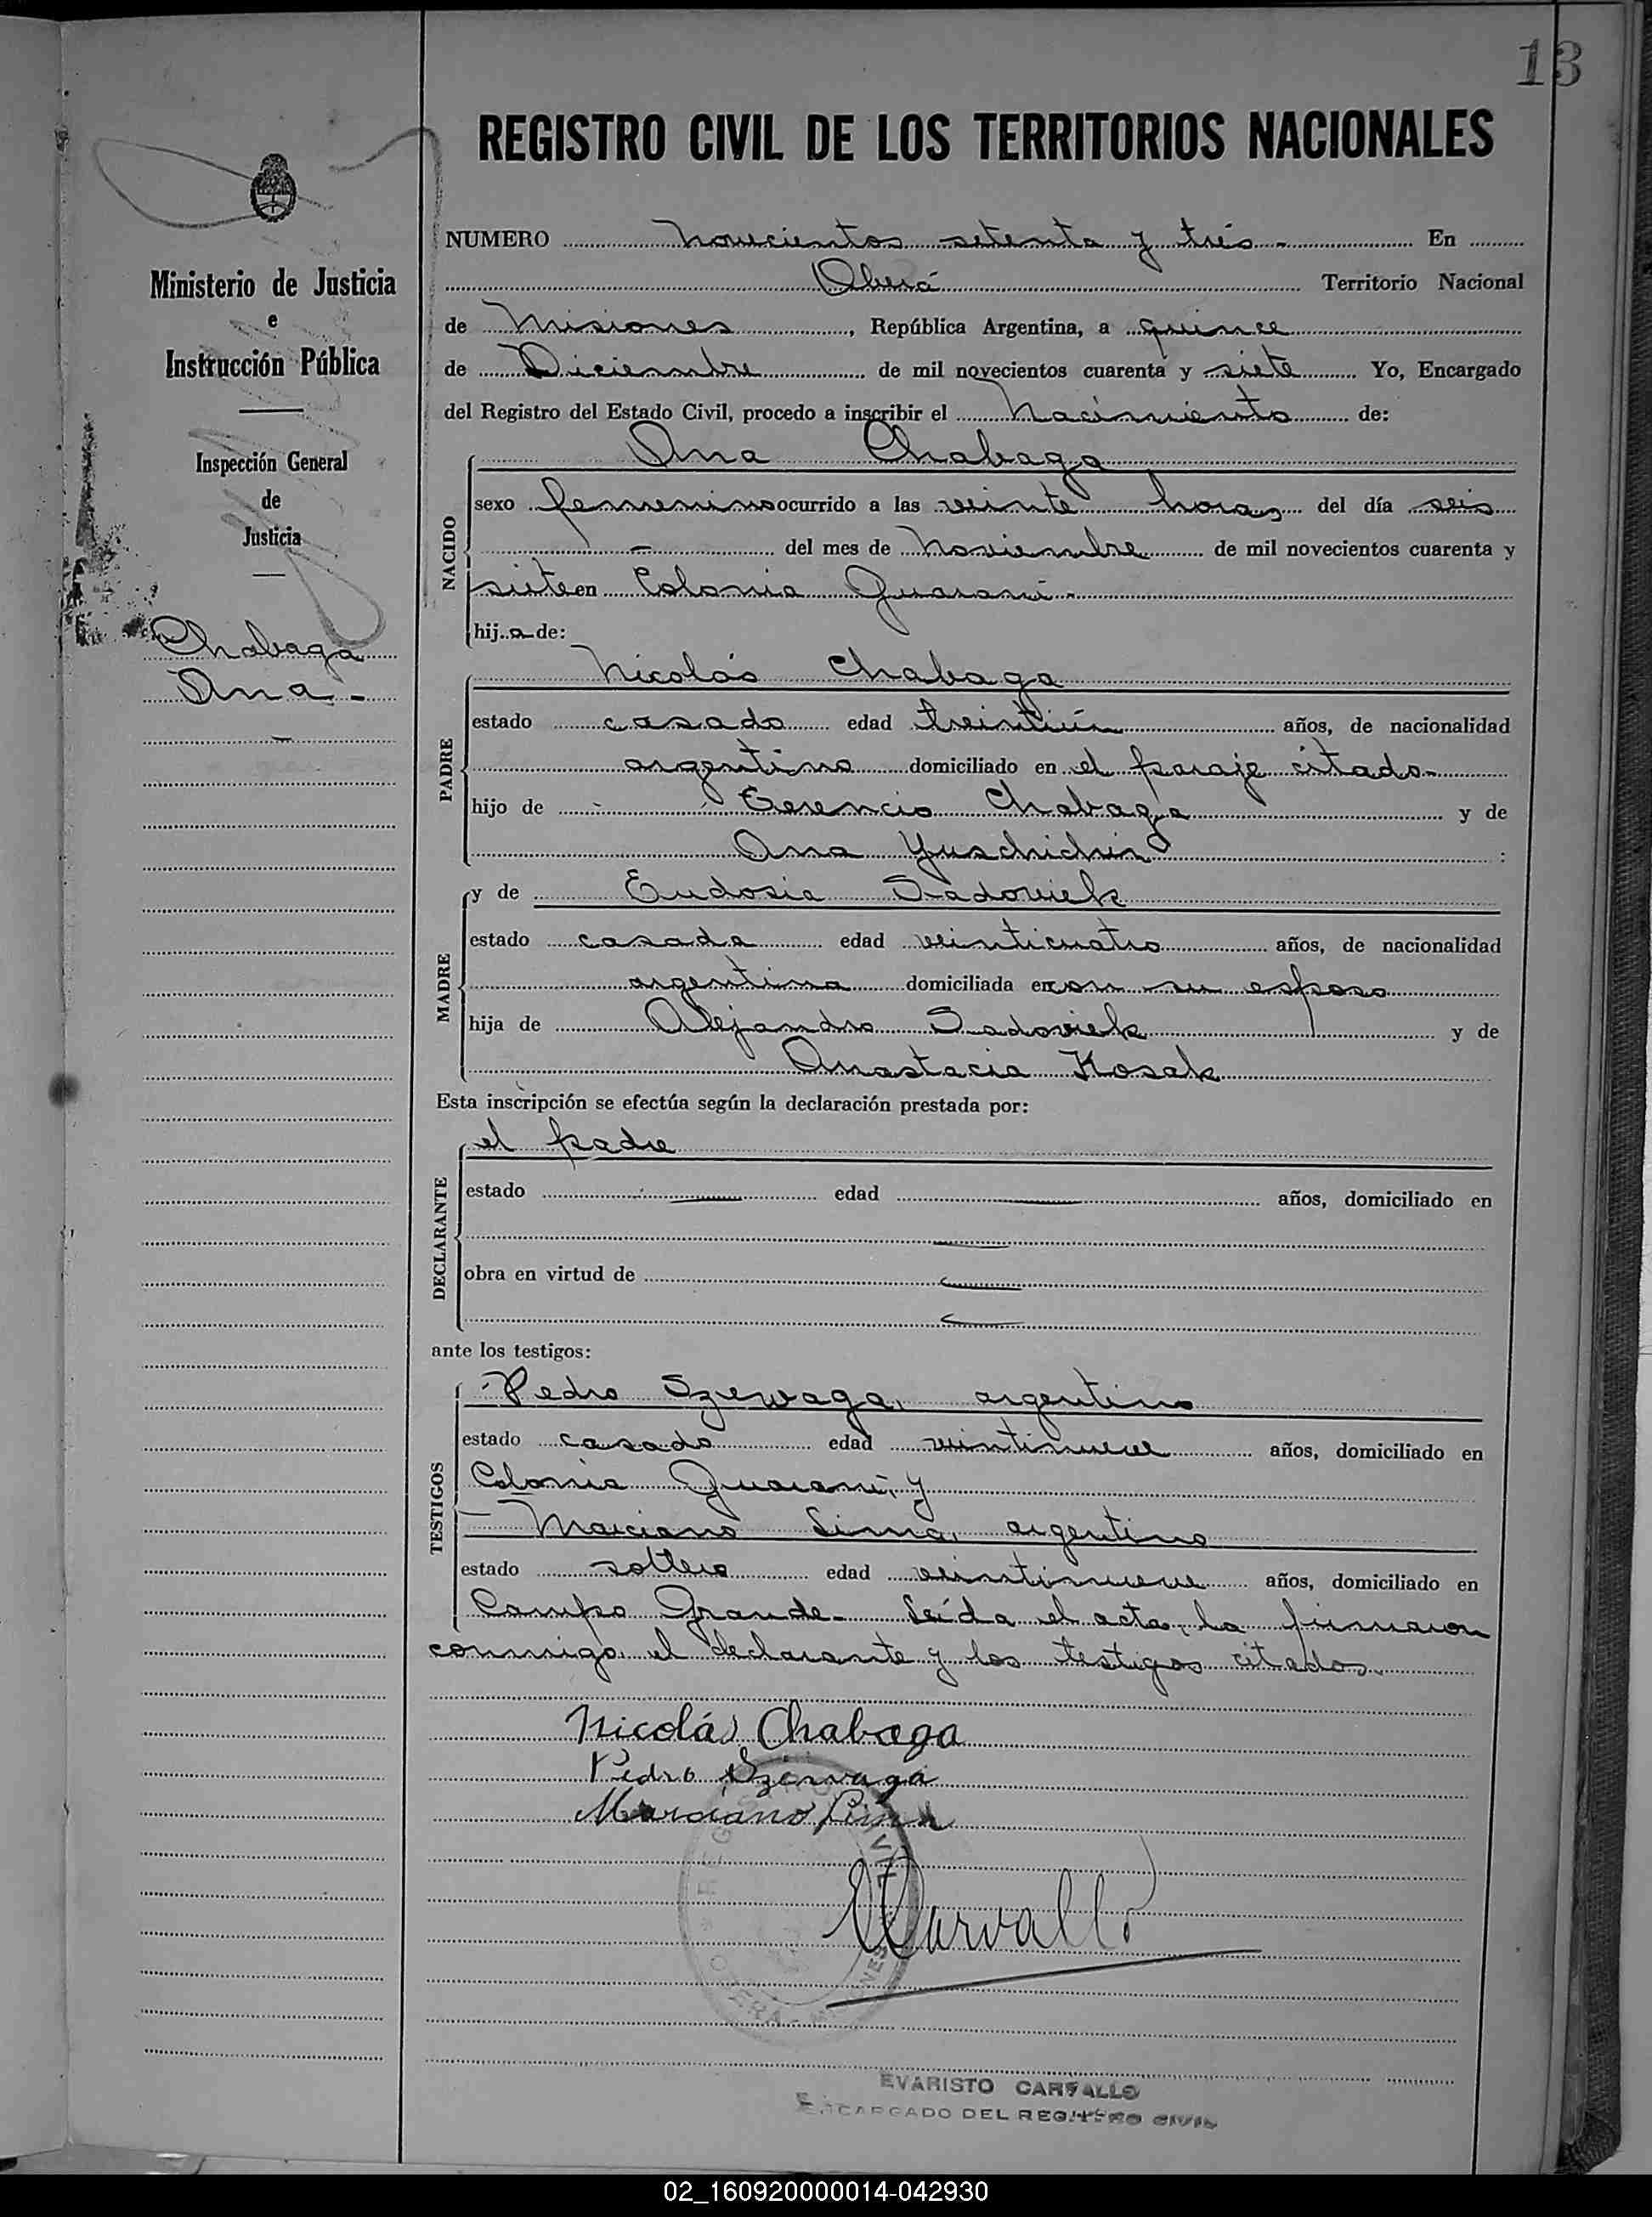 13
REGISTRO CIVIL DE LOS TERRITORIOS NACIONALES
Ministerio de Justicia
e
Instrucción Pública
Inspección General
de
Justicia
Chabaga
Ana -
NUMERO novecientos setenta y trés - En
Oberá Territorio Nacional
de Misiones, República Argentina, a quince
de Diciembre de mil novecientos cuarenta y siete Yo, Encargado
del Registro del Estado Civil, procedo a inscribir el Nacimiento de:
NACIDO
Ana Chabaga
sexo femenino ocurrido a las veinte horas del día seis
- del mes de Noviembre de mil novecientos cuarenta y
siete en Colonia Guaraní -
hij a de:
PADRE
Nicolás Chabaga
estado casado edad treintiún años, de nacionalidad
argentino domiciliado en el paraje citado -
hijo de Chabaga y de
Ana
MADRE
y de Eudosia Sadoviek
estado casada edad veinticuatro años, de nacionalidad
argentina domiciliada en con su esposo
hija de Alejandro Sadoviek y de
Anastacia Kosak
Esta inscripción se efectúa según la declaración prestada por:
DECLARANTE
el padre
estado edad años, domiciliado en
obra en virtud de
ante los testigos:
TESTIGOS
Pedro Szewaga, argentino
estado casado edad veintinueve años, domiciliado en
Colonia Guaraní, y
Marciano Lima, argentino
estado soltero edad veintinueve años, domiciliado en
Campo Grande - Leída el acta, la firmaron
conmigo, el declarante y los testigos citados.
Nicolás Chabaga
Pedro Szewaga
Marciano Lima
ECarvallo
EVARISTO CARVALLO
ENCARGADO DEL REGISTRO CIVIL
02_160920000014-042930